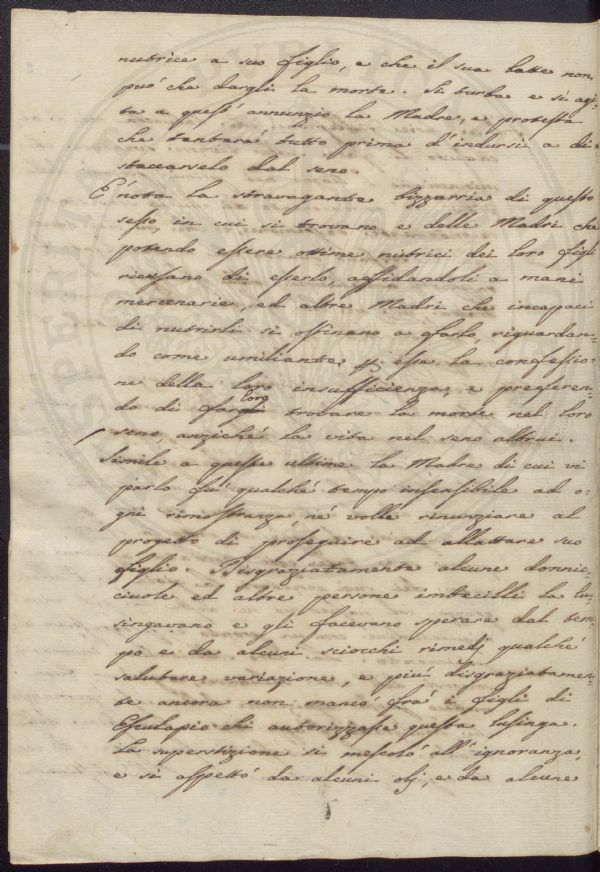 nutrice a suo figlio, e che il suo latte non
può che dargli la morte. Si turba e si agi=
ta a quest' annunzio la Madre, e protesta
che tentará tutto prima d'indursi a di=
staccarselo dal seno.
É nota la stravagante bizzarria di questo
sesso, in cui si trovano e delle Madri che
potendo essere ottime nutrici dei loro figli
ricusano di esserlo, affidandoli a mani
mercenarie, ed altre Madri che incapaci
di nutrirli si ostinano a farlo, riguardan=
do come umiliante per esse la confessio=
ne della loro insufficienza, e preferen=
do di far loro trovare la morte nel loro
seno, anziché la vita nel seno altrui.
Simile a queste ultime la Madre di cui vi
parlo fú qualché tempo insensibile ad o=
gni rimostranza, né volle rinunziare al
progetto di proseguire ad allattare suo
figlio. Disgraziatamente alcune donnic=
ciuole ed altre persone imbecilli la lu=
singavano e gli facevano sperare dal tem=
po e da alcuni sciocchi rimedj qualché
salutare variazione, e piú disgraziatamen=
te ancora non mancó frá i figli di
Esculapio chi autorizzasse questa lusinga.
La superstizione si mescoló all'ignoranza,
e si aspettó da alcuni olj, e da alcune